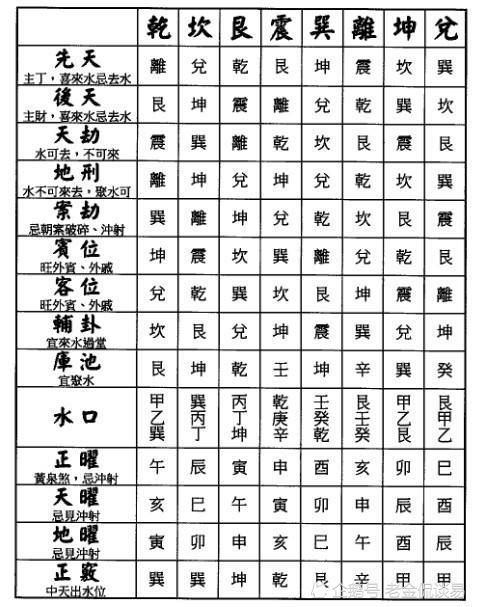 乾 坎 艮 震 巽 離 坤 兌
先天 離 兌 乾 艮 坤 震 坎 巽
主丁,喜來水忌去水
後天 艮 坤 震 離 兌 乾 巽 坎
主財,喜來水忌去水
天劫 震 巽 離 乾 坎 艮 震 艮
水可去,不可來
地刑 離 坤 兌 坤 兌 乾 坎 巽
水不可來去,聚水可
案劫 巽 離 坤 兌 乾 坎 艮 震
忌朝案破碎、沖射
賓位 坤 震 坎 巽 離 兌 乾 艮
旺外賓、外戚
客位 兌 乾 巽 坎 艮 坤 震 離
旺外賓、外戚
輔卦 坎 艮 兌 坤 震 巽 兌 坤
宜來水過堂
庫池 艮 坤 乾 壬 坤 辛 巽 癸
宜聚水
水口 甲乙巽 巽丙丁 丙丁坤 乾庚辛 壬癸乾 艮壬癸 甲乙艮 艮甲乙
正曜 午 辰 寅 申 酉 亥 卯 巳
黃泉煞,忌沖射
天曜 亥 巳 午 寅 卯 申 辰 酉
忌見沖射
地曜 寅 卯 申 亥 巳 午 酉 辰
忌見沖射
正竅 巽 巽 坤 乾 艮 辛 甲 甲
中天出水位